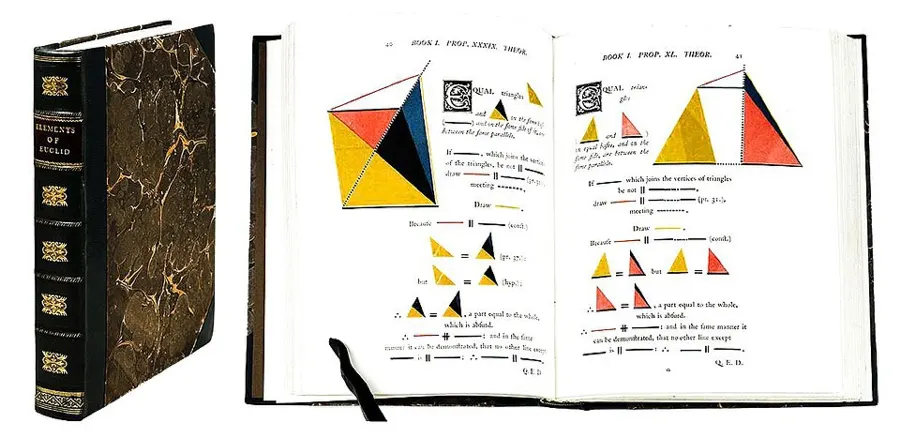 ELEMENTS
OF
EUCLID
40 BOOK I. PROP. XXXIX. THEOR.
EQUAL triangles
and in the same
and on the same side of it, are
between the same parallels.
If , which joins the vertices
of the triangles, be not ||
draw || (pr. 31.),
meeting
Draw .
Because || (const.)
= (pr. 37.):
but = (hyp.);
∴ = , a part equal to the whole,
which is absurd.
∴ ∦ ; and in the same
manner it can be demonstrated, that no other line except
is || ; ∴ ||
Q. E. D.
BOOK I. PROP. XL. THEOR. 41
EQUAL trian-
gles
( and )
on equal bases, and on the
same side, are between the
same parallels.
If which joins the vertices of triangles
be not || ,
draw || (pr. 31.),
meeting .
Draw .
Because || (const.)
= but =
∴ = , a part equal to the whole,
which is absurd.
∴ ∦ : and in the same manner it
can be demonstrated, that no other line except
is || : ∴ || .
Q. E. D.